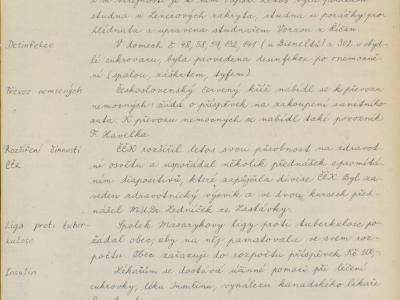 studna u Ženerových zakryta, studna u porážky pro-
hlédnuta a upravena studnařem Vorzou z Říčan.
Desinfekce V domech č. 48, 58, 59, 132, 141 ( u Bieneltů) a 302 v obydlí
cukrovaru, byla provedena desinfekce po onemocně-
ní (spálou, záškrtem, tyfem).
Převoz nemocných Československý červený kříž nabídl se k převozu
nemocných - žádá o příspěvek na zakoupení sanitního
auta. K převozu nemocných se nabídl také povozník
F. Havelka
Rozšíření činnosti ČČK rozšířil letos svou působnost na zdravot-
ČČK ní osvětu a uspořádal několik přednášek s promítá-
ním diapositivů, které zapůjčila divise ČČK. Byl za-
veden zdravotnický výcvik a ve dvou kursech před-
nášel MUDr. Ledníček ze Zastávky.
Liga proti tuber- Spolek Masarykovy ligy proti tuberkulose po-
kulose žádal obec, aby na něj pamatovala ve svém roz-
počtu. Obec zařazuje do rozpočtu příspěvek Kč 200,-
Insulin Lékařům se dostává účinné pomoci při léčení
cukrovky, léku Insulinu, vynálezu kanadského lékaře